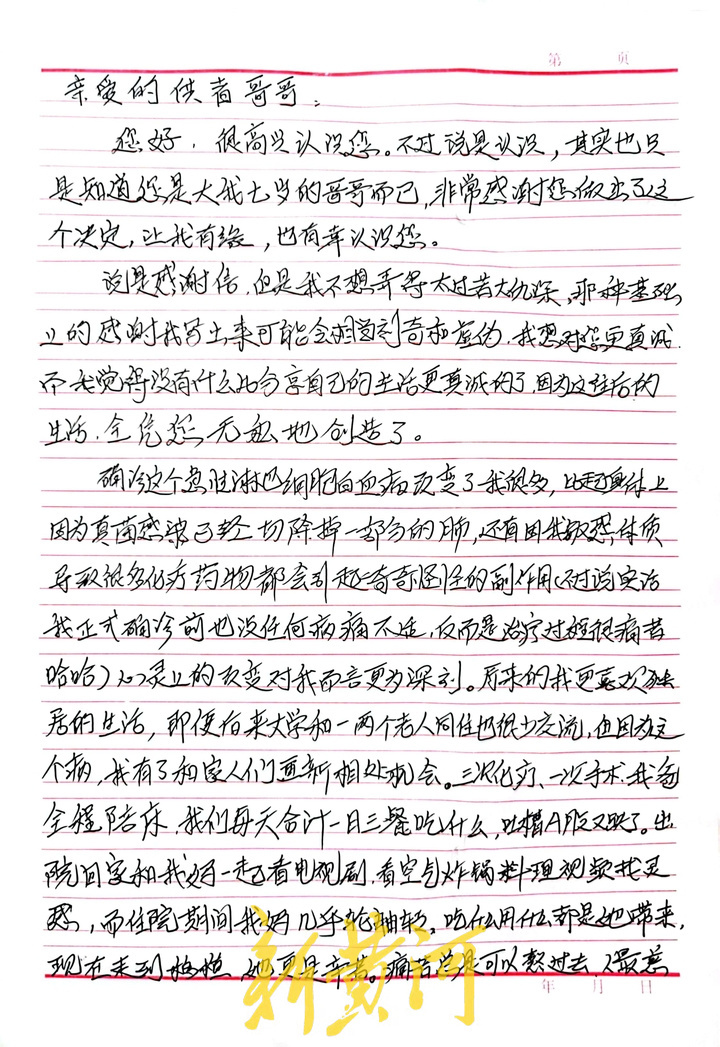 第 页
亲爱的供者哥哥：
您好，很高兴认识您。不过说是认识，其实也只
是知道您是大我七岁的哥哥而已，非常感谢您做出了这
个决定，让我有缘，也有幸认识您。
说是感谢信，但是我不想弄得太过苦大仇深，那种基础
上的感谢我写出来可能会相当刻奇和虚伪，我想对您更真诚，
而我觉得没有什么比分享自己的生活更真诚的了，因为这往后的
生活，全凭您无私地创造了。
确诊这个急性淋巴细胞白血病改变了我很多，比起身体上
因为真菌感染了轻切除掉一部分的肺，还有因我敏感体质
导致很多化疗药物都会引起奇奇怪怪的副作用（不过说实话
我正式确诊前也没任何病痛不适，反而是治疗过程很痛苦
哈哈）心灵上的改变对我而言更为深刻。原来的我更喜欢独
居的生活，即便后来大学和一两个老人同住也很少交流，但因为这
个病，我有了和家人们重新相处机会。三次化疗、一次手术，我爸
全程陪床，我们每天合计一日三餐吃什么，吐槽A股又跌了。出
院回家和我妈一起看电视剧，看空气炸锅料理视频找灵
感，而住院期间我妈几乎轮轴转，吃什么用什么都是她带来，
现在来到 她更是辛苦。痛苦总是可以熬过去，（最差
年 月 日
新黄河